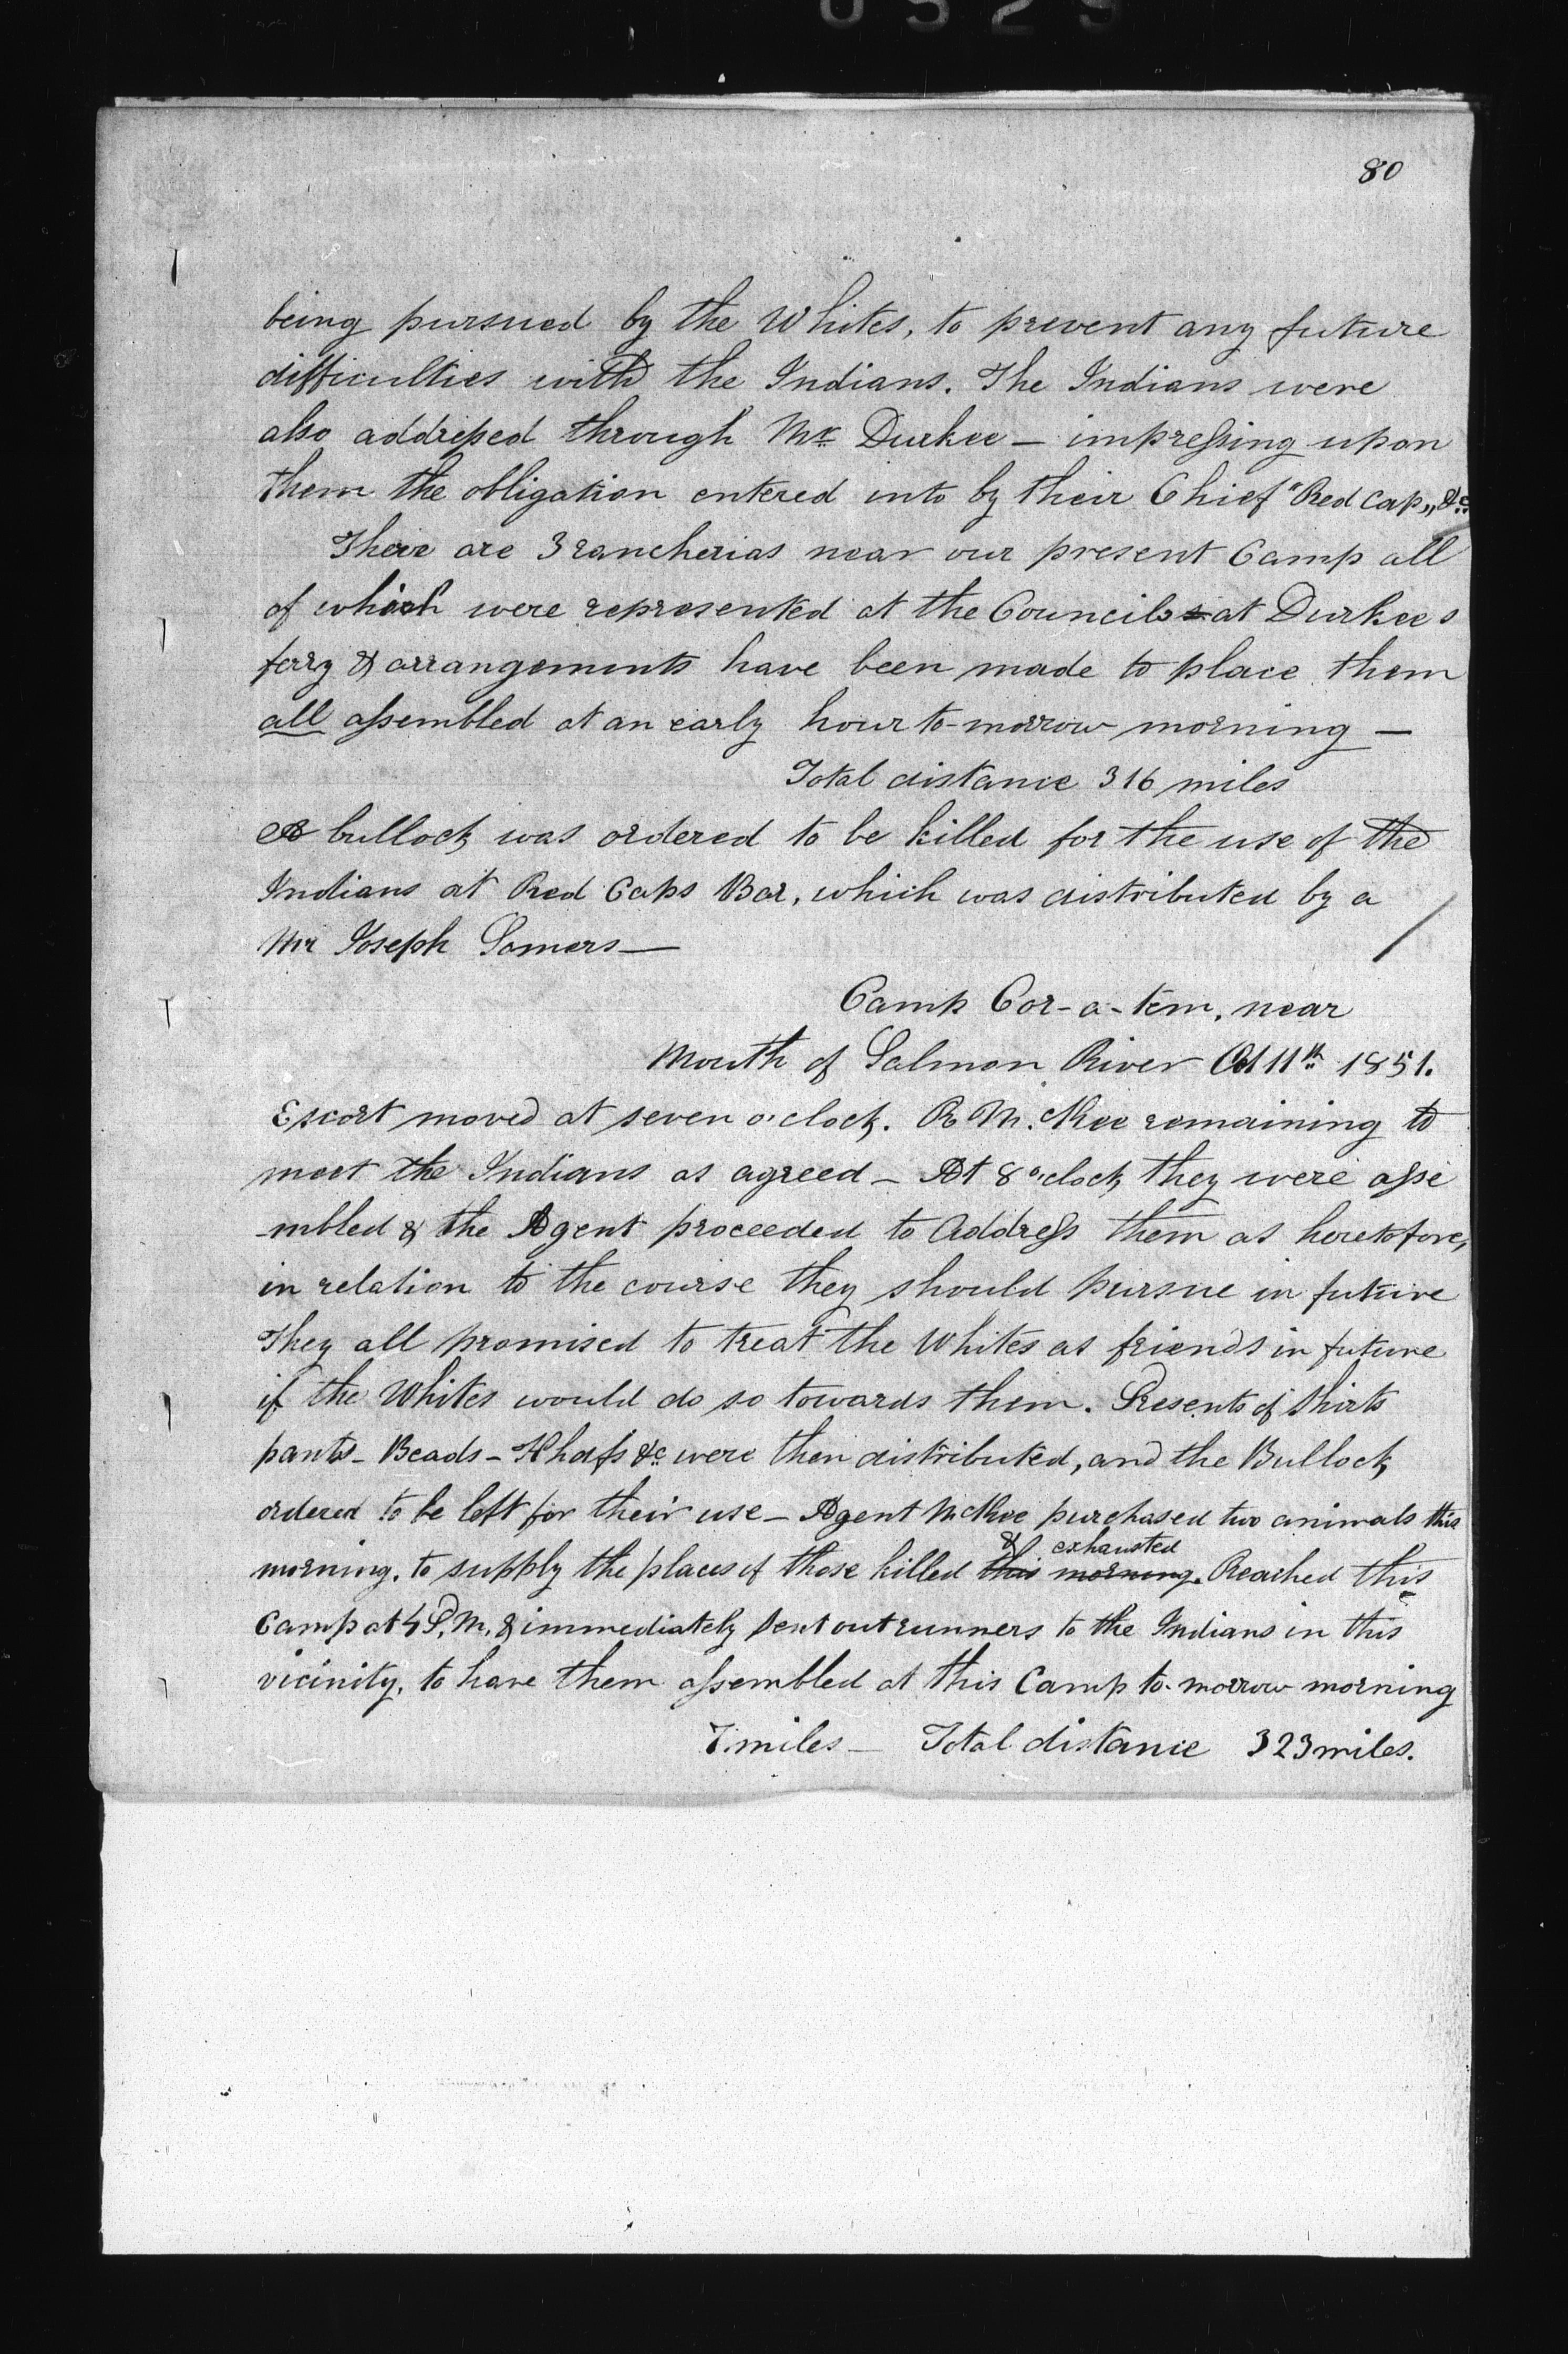 80
being pursued by the Whites, to prevent any future
difficulties with the Indians. The Indians were
also addressed through Mr. Durkee — impressing upon
them the obligation entered into by their Chief "Red Cap„ &c.
There are 3 rancherias near our present Camp all
of which were represented at the Councils at Durkees
ferry & arrangements have been made to place them
all assembled at an early hour to-morrow morning —
Total distance 316 miles
A bullock was ordered to be killed for the use of the
Indians at Red Caps Bar, which was distributed by a
Mr Joseph Somers —
Camp Cor-a-tem, near
Mouth of Salmon River Oct 11th 1851.
Escort moved at seven o'clock. R McKee remaining to
meet the Indians as agreed — At 8 o'clock they were asse
-mbled & the Agent proceeded to Address them as heretofore,
in relation to the course they should pursue in future
They all promised to treat the Whites as friends in future
if the Whites would do so towards them. Presents of shirts
pants - Beads - Hhdfs &c were then distributed, and the Bullock
ordered to be left for their use — Agent McKee purchased two animals this
& exhausted
morning, to supply the places of those killed this morning. Reached this
Camp at 4 P.M. & immediately sent out runners to the Indians in this
vicinity, to have them assembled at this Camp to-morrow morning
7 miles — Total distance 323 miles.